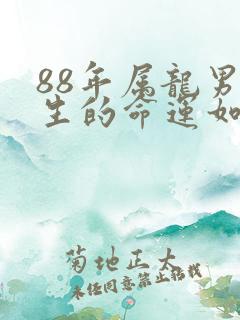 88年属龍男
生的命運如
菊地正大
未经同意禁止转载